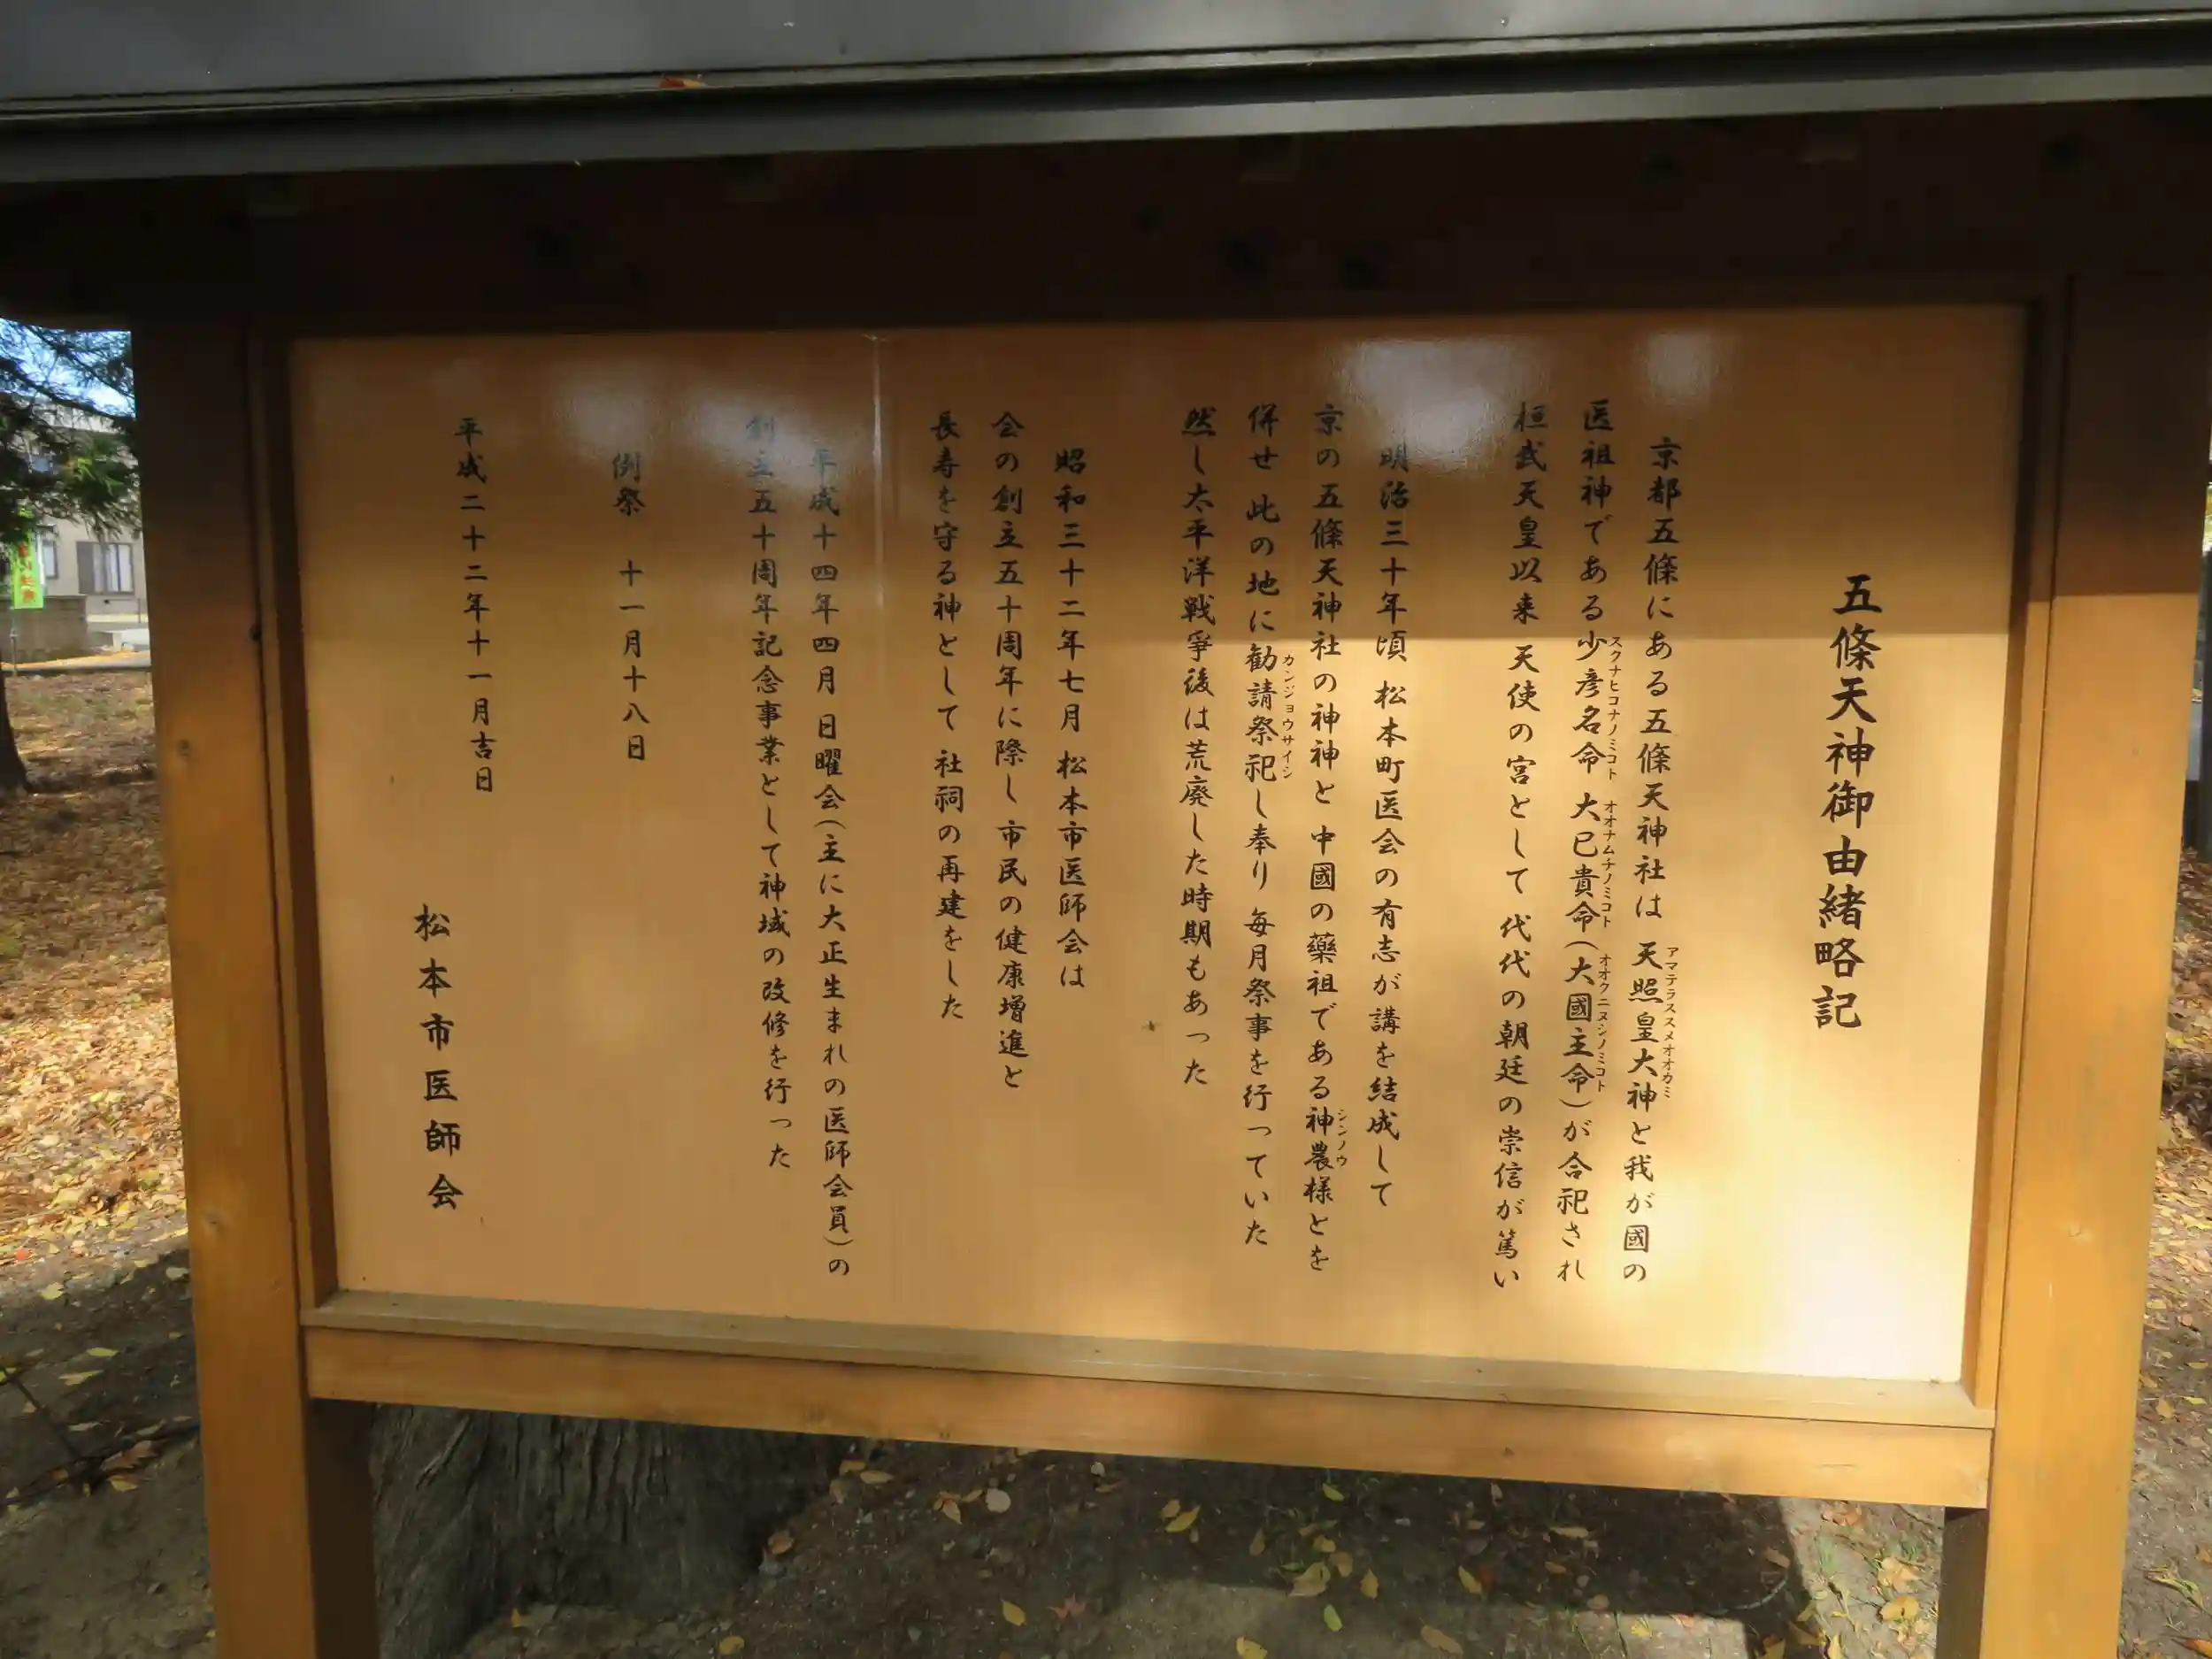 五條天神御由緒略記
京都五條にある五條天神社は 天照皇大神と我が國の
アマテラススメオオカミ
医祖神である少彦名命 大已貴命(大國主命)が合祀され
スクナヒコナノミコト オオナムチノミコト オオクニヌシノミコト
桓武天皇以来 天使の宮として 代代の朝廷の崇信が篤い
明治三十年頃 松本町医会の有志が講を結成して
京の五條天神社の神神と 中國の藥祖である神農様とを
シンノウ
併せ 此の地に勧請祭祀し奉り 毎月祭事を行っていた
カンジョウサイシ
然し太平洋戦爭後は荒廃した時期もあった
昭和三十二年七月 松本市医師会は
会の創立五十周年に際し 市民の健康増進と
長寿を守る神として 社祠の再建をした
平成十四年四月 日曜会(主に大正生まれの医師会員)の
創立五十周年記念事業として神域の改修を行った
例祭 十一月十八日
平成二十二年十一月吉日
松本市医師会